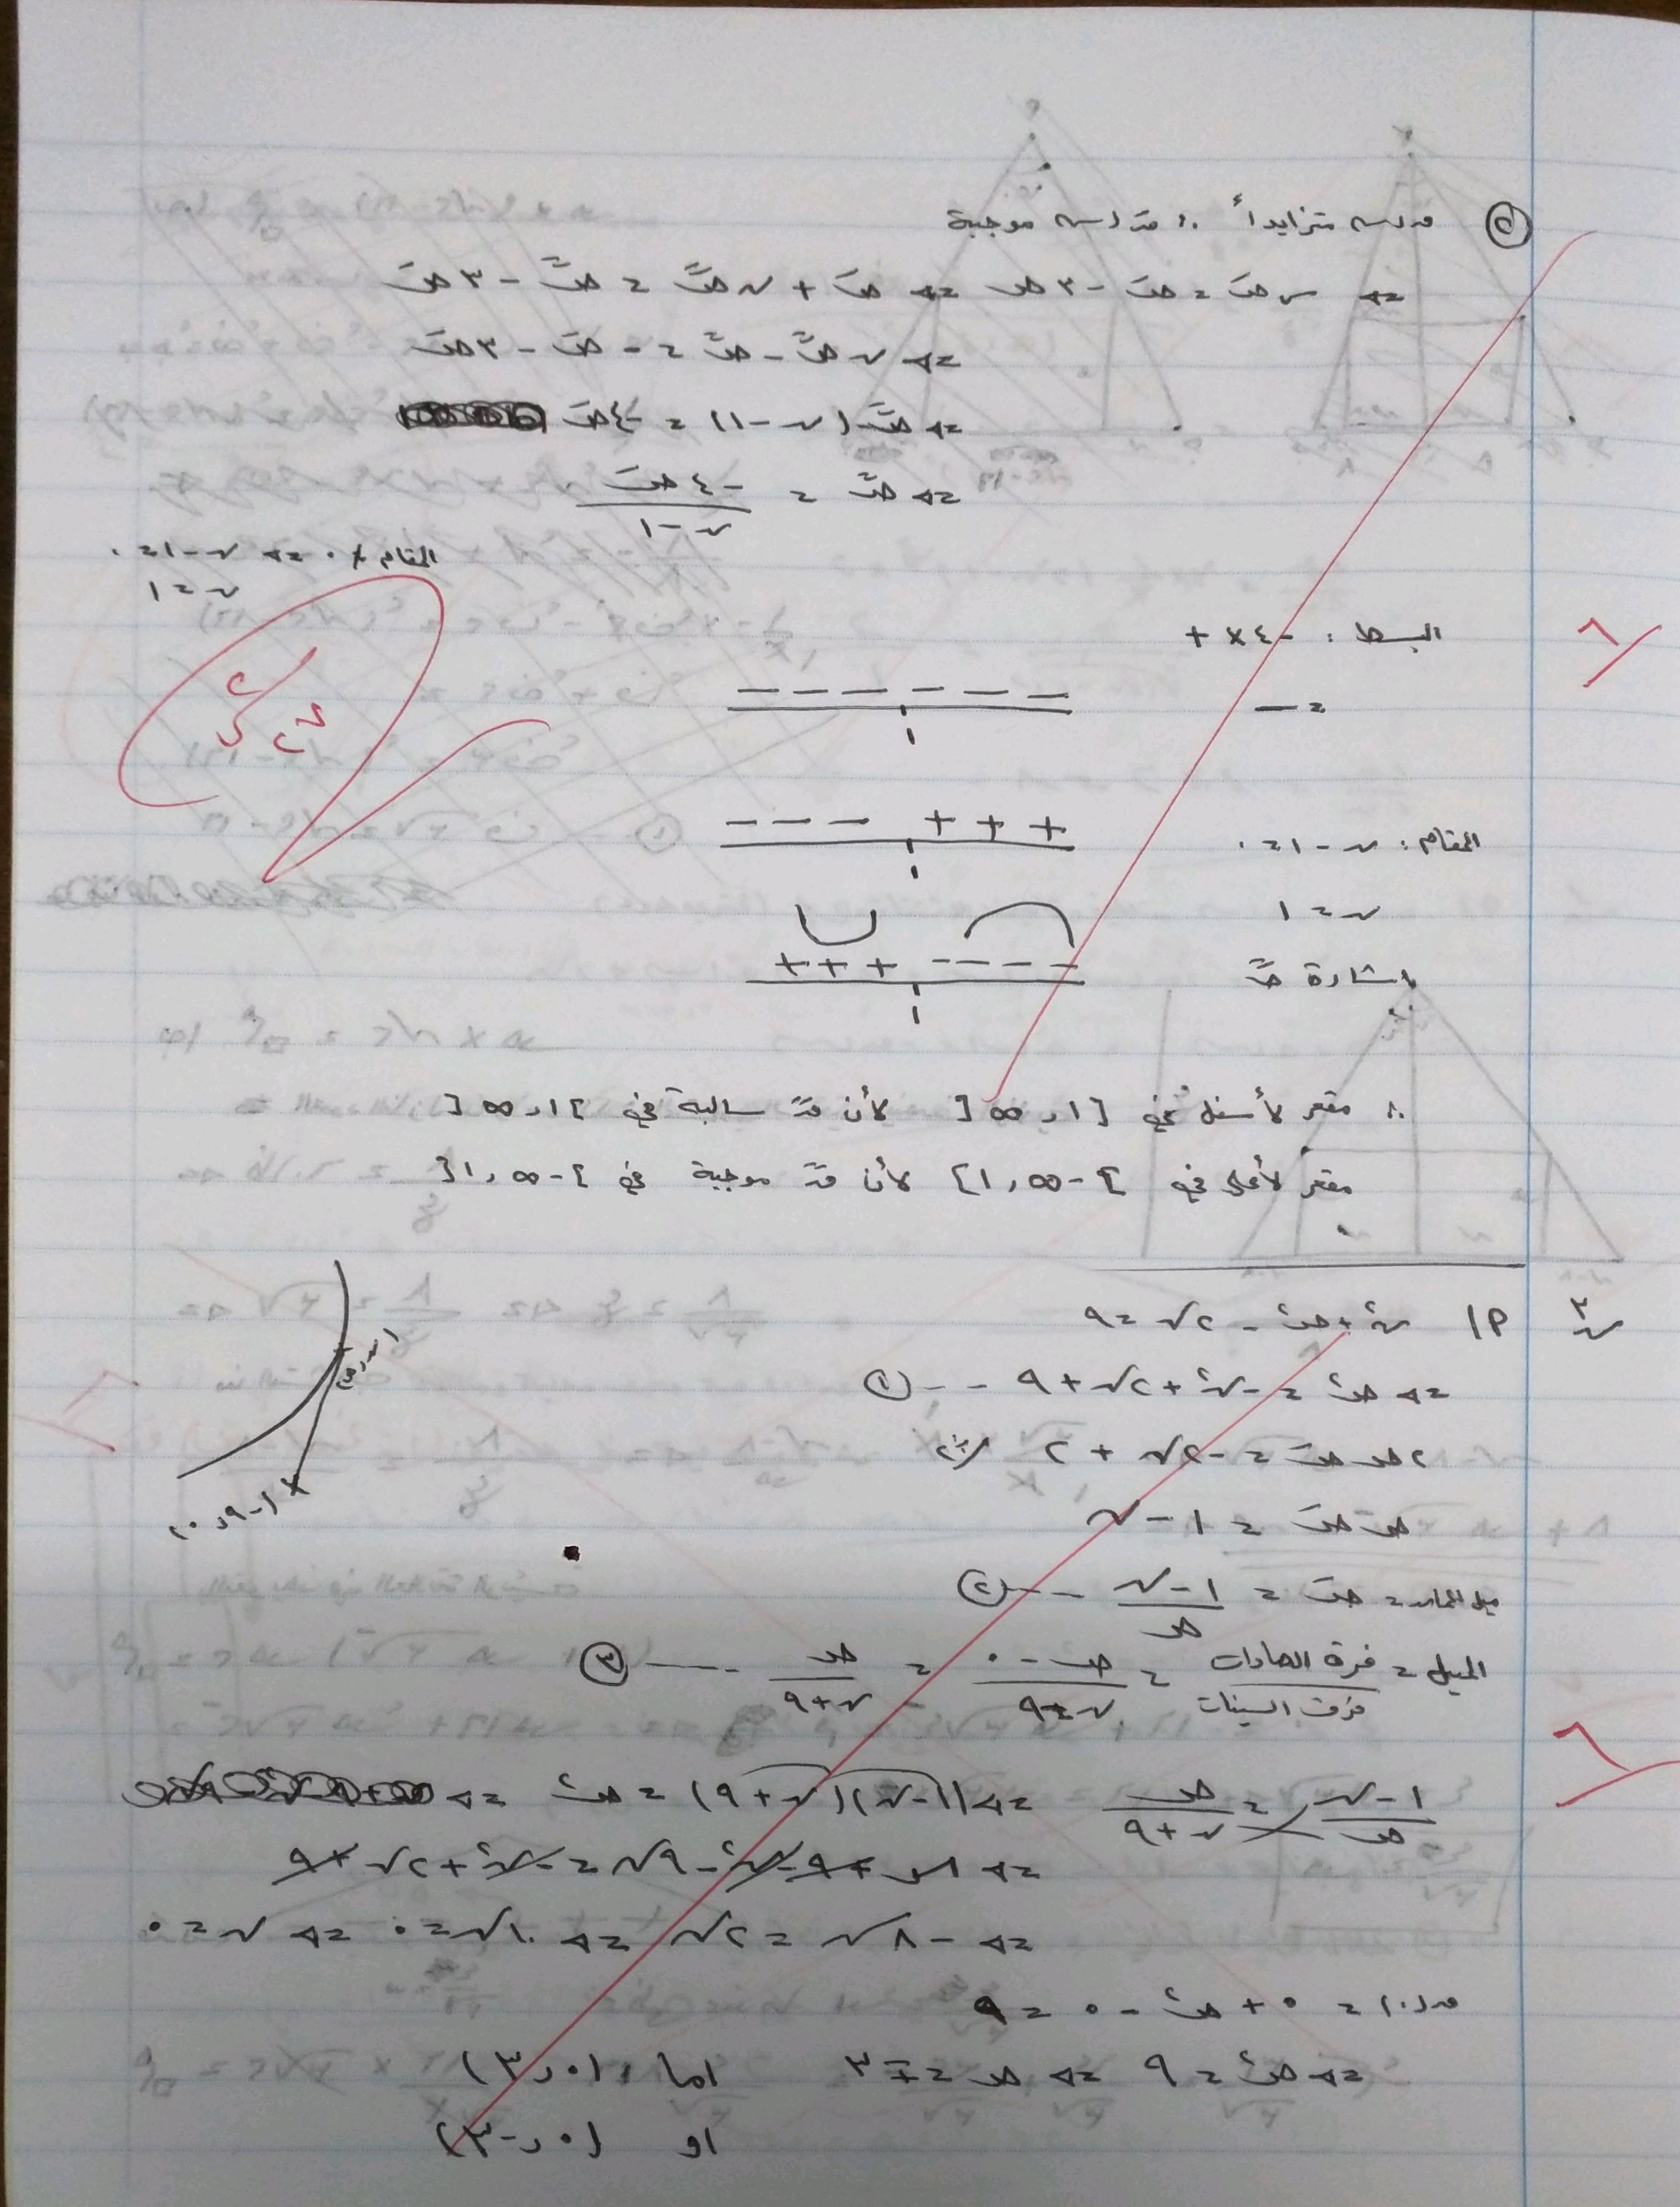 ② ق(س) متزايداً ∴ قَ(س) موجبة
⇐ س صَ = صَ - ٣ص ⇐ صَ + س صً = صً - ٣صَ
⇐ س صً - صً = - صَ - ٣صَ
⇐ صً (س - ١) = -٤صَ
⇐ صً = -٤صَ / س - ١
المقام ≠ ٠ ⇐ س - ١ = ٠
س = ١
البسط : -٤ × +
= -
- - - - - - -
١
المقام : س - ١ = ٠
- - - + + +
١
س = ١
إشارة صً
+ + + - - - -
١
∴ مقعر لأسفل في [١، ∞[ لأن قً سالبة في ]١، ∞[
مقعر لأعلى في ]-∞، ١] لأن قً موجبة في ]-∞، ١[
س٣ أ) س٢ + ص٢ - ٢س = ٩
⇐ ص٢ = -س٢ + ٢س + ٩ -- ①
٢ص صَ = -٢س + ٢ /÷٢
ص صَ = ١ - س
(س، ص)
(-٩، ٠)
ميل المماس = صَ = ١ - س / ص -- ②
الميل = فرق الصادات / فرق السينات = ص - ٠ / س + ٩ = ص / س + ٩ --- ③
١ - س / ص = ص / س + ٩ ⇐ (١ - س)(س + ٩) = ص٢ ⇐
⇐ س + ٩ - س٢ - ٩س = -س٢ + ٢س + ٩
⇐ -٨س = ٢س ⇐ ١٠س = ٠ ⇐ س = ٠
ق(٠) = ٠ + ص٢ - ٠ = ٩
⇐ ص٢ = ٩ ⇐ ص = ∓٣ اما (٠، ٣)
او (٠، -٣)